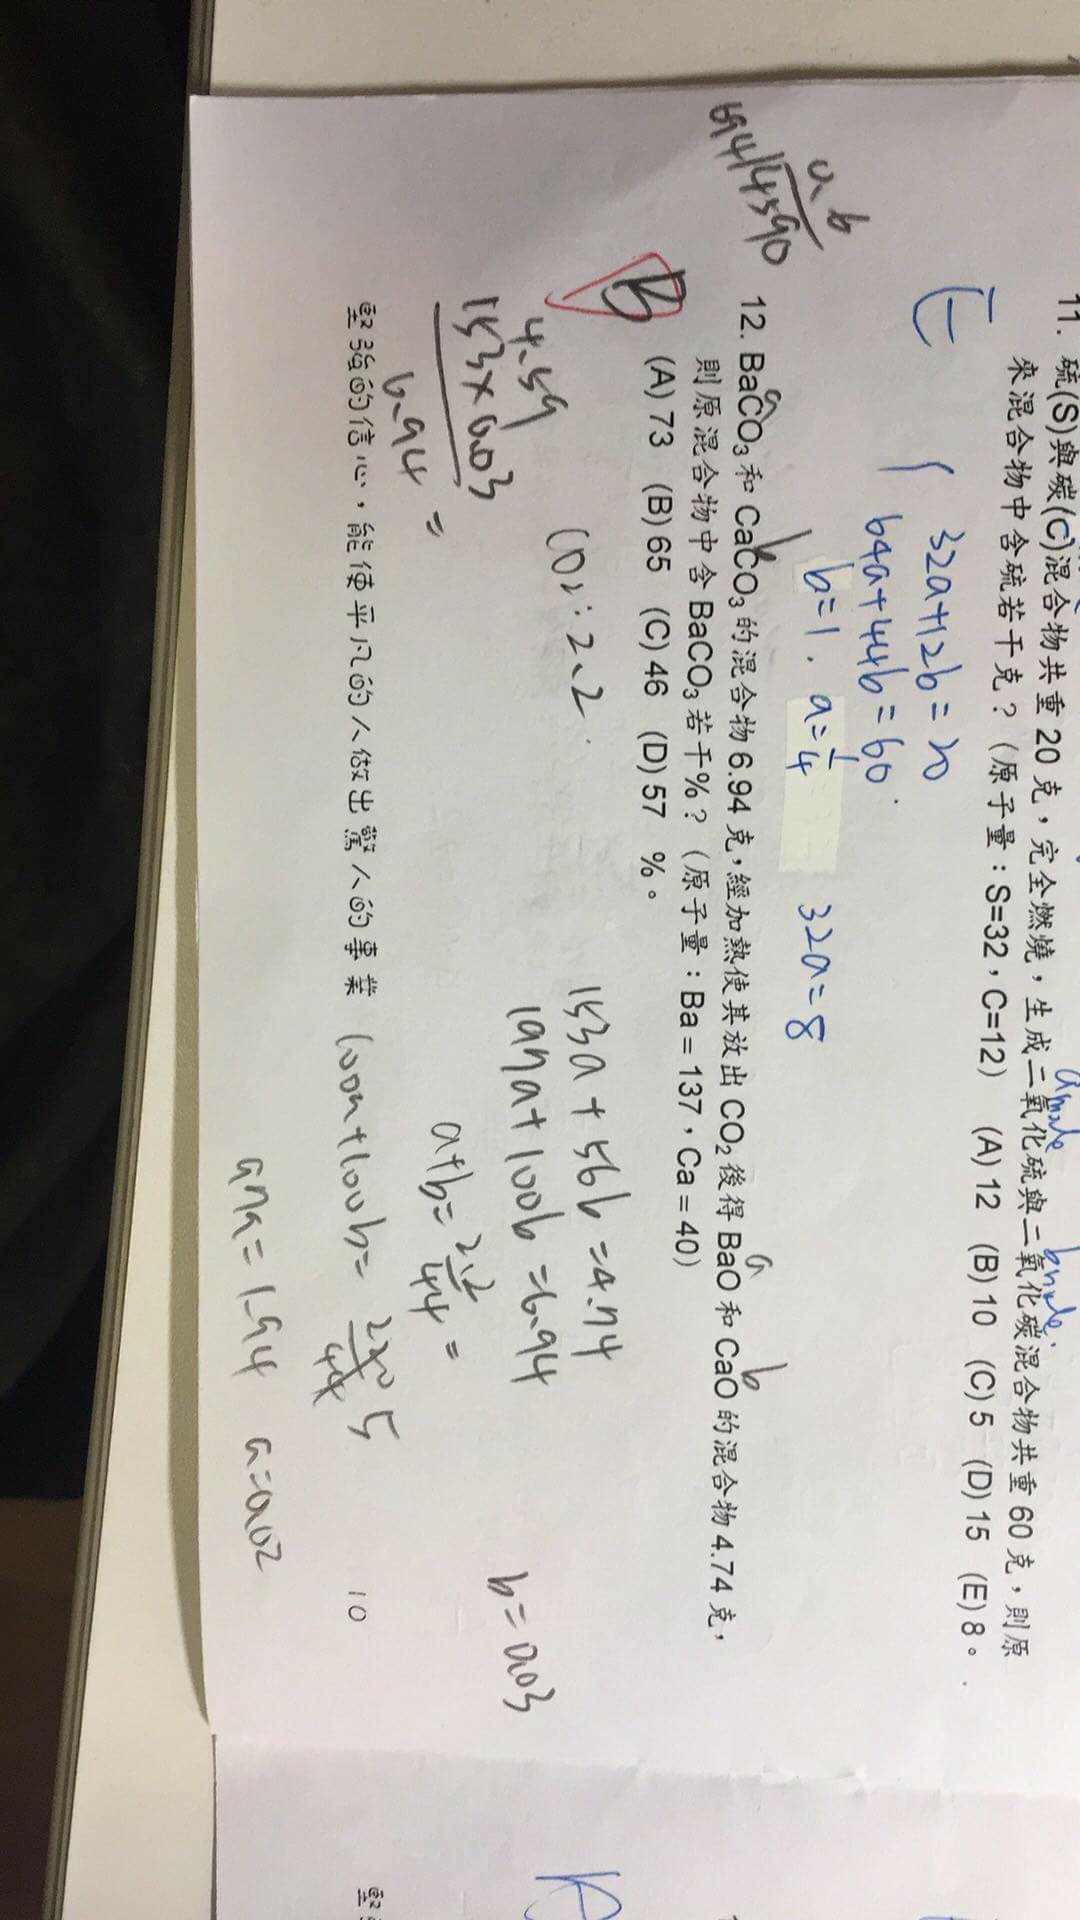 11. 硫(S)與碳(C)混合物共重 20 克，完全燃燒，生成二氧化硫與二氧化碳混合物共重 60 克，則原
來混合物中含硫若干克？（原子量：S=32，C=12） (A) 12 (B) 10 (C) 5 (D) 15 (E) 8。
a mole
b mole
E
32a+12b=20
64a+44b=60
b=1. a=1/4
32a=8
a b
694/4590
12. BaCO₃ 和 CaCO₃ 的混合物 6.94 克，經加熱使其放出 CO₂ 後得 BaO 和 CaO 的混合物 4.74 克，
則原混合物中含 BaCO₃ 若干%？（原子量：Ba = 137，Ca = 40）
(A) 73 (B) 65 (C) 46 (D) 57 %。
a
b
a
b
B
CO₂: 2.2
4.59
153×0.03
6.94
=
153a+56b=4.74
197a+100b=6.94
b=0.03
a+b=2.2/44=
100a+100b=220/44 5
97a=1.94 a=0.02
堅強的信心，能使平凡的人做出驚人的事業
10
堅